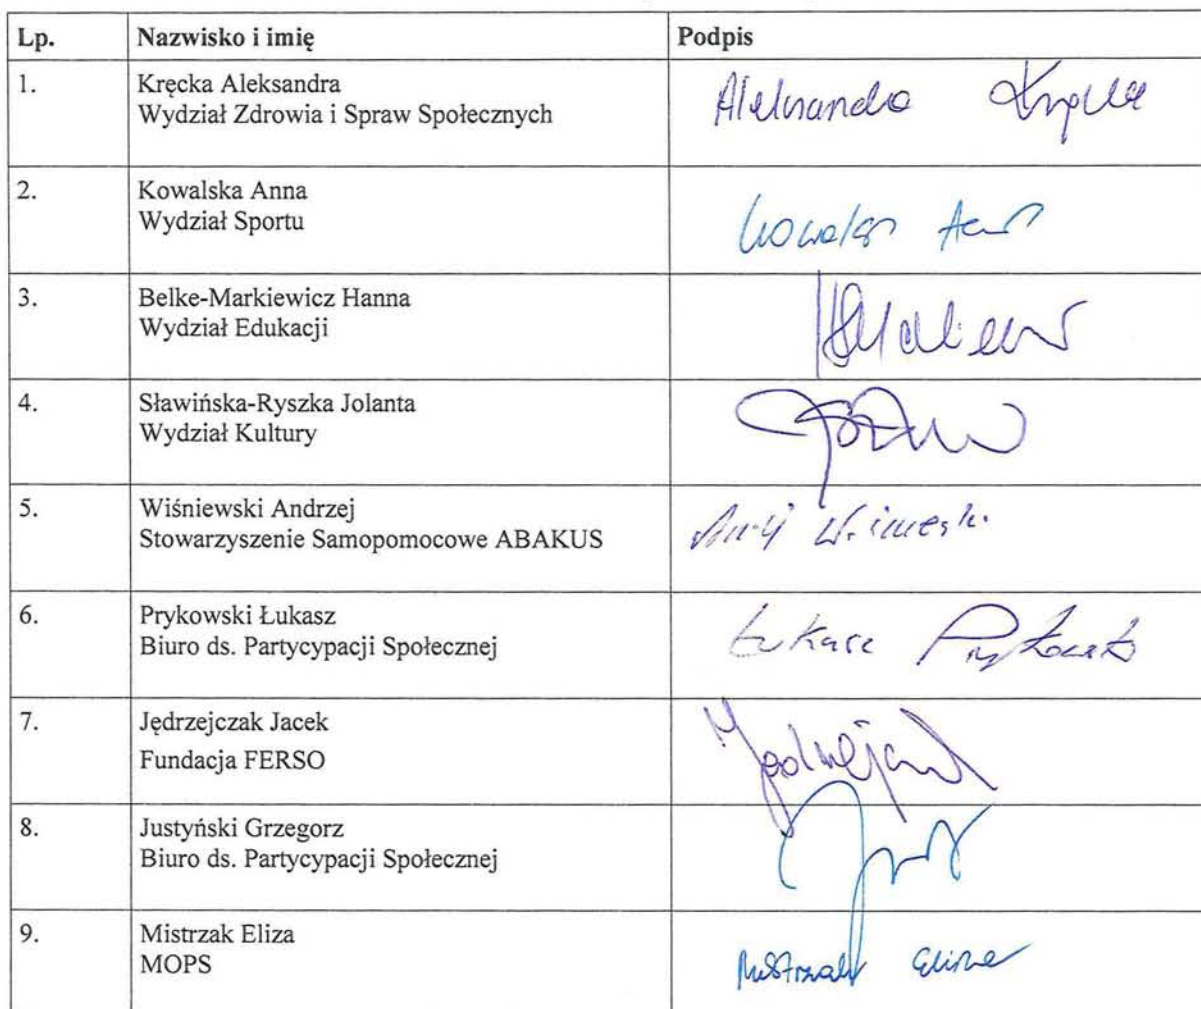 Lp. Nazwisko i imię Podpis
1. Kręcka Aleksandra
Wydział Zdrowia i Spraw Społecznych
Aleksandra Kręcka
2. Kowalska Anna
Wydział Sportu
Kowalska
3. Belke-Markiewicz Hanna
Wydział Edukacji
4. Sławińska-Ryszka Jolanta
Wydział Kultury
5. Wiśniewski Andrzej
Stowarzyszenie Samopomocowe ABAKUS
6. Prykowski Łukasz
Biuro ds. Partycypacji Społecznej
Łukasz Prykowski
7. Jędrzejczak Jacek
Fundacja FERSO
8. Justyński Grzegorz
Biuro ds. Partycypacji Społecznej
9. Mistrzak Eliza
MOPS
Mistrzak Eliza